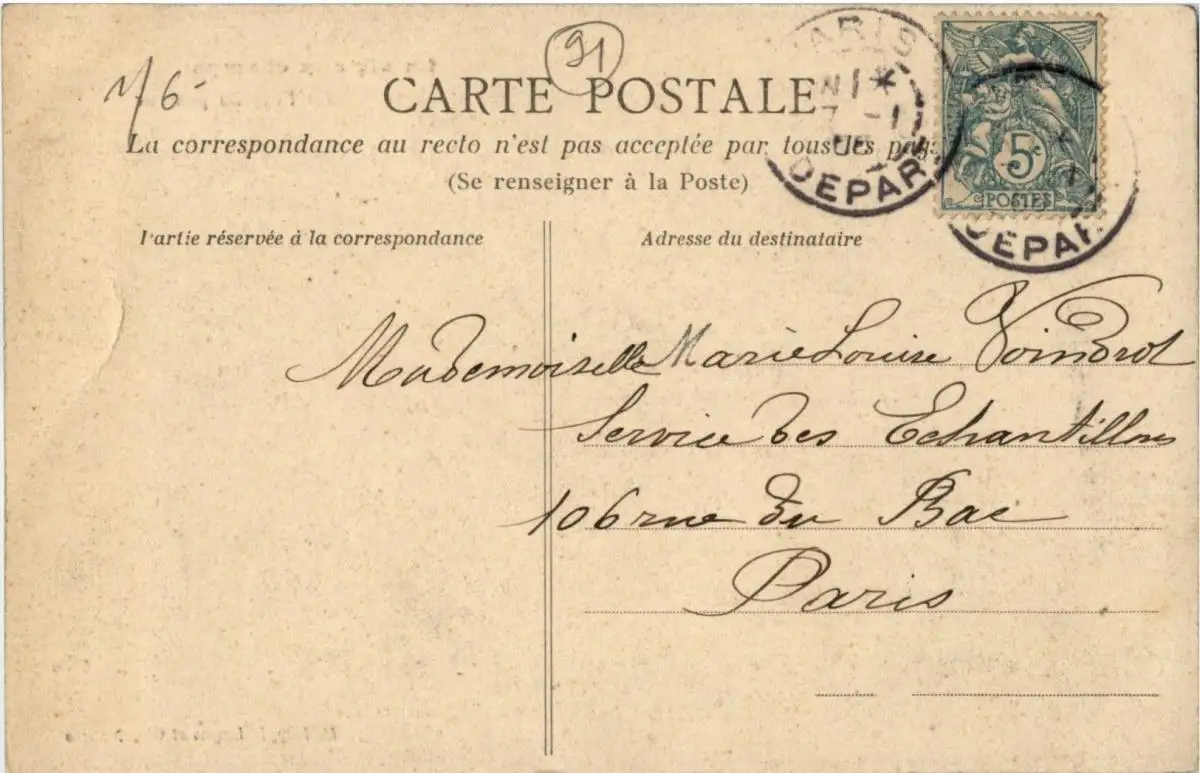 91
CARTE POSTALE
La correspondance au recto n'est pas acceptée par tous les pays
(Se renseigner à la Poste)
PARIS
DEPART
5c
POSTES
DEPAR
Partie réservée à la correspondance
Adresse du destinataire
Mademoiselle Marie Louise Voindrot
Service des Echantillons
106 rue du Bac
Paris